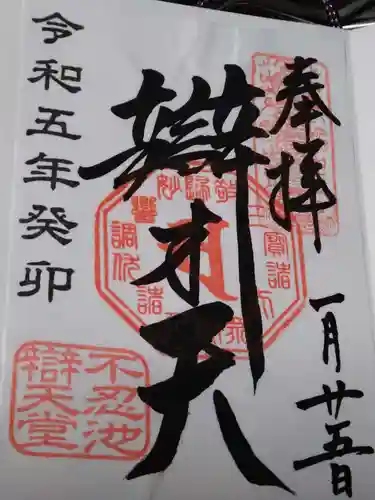 奉拝
一月廿五日
辨才天
令和五年癸卯
不忍池
辯天堂